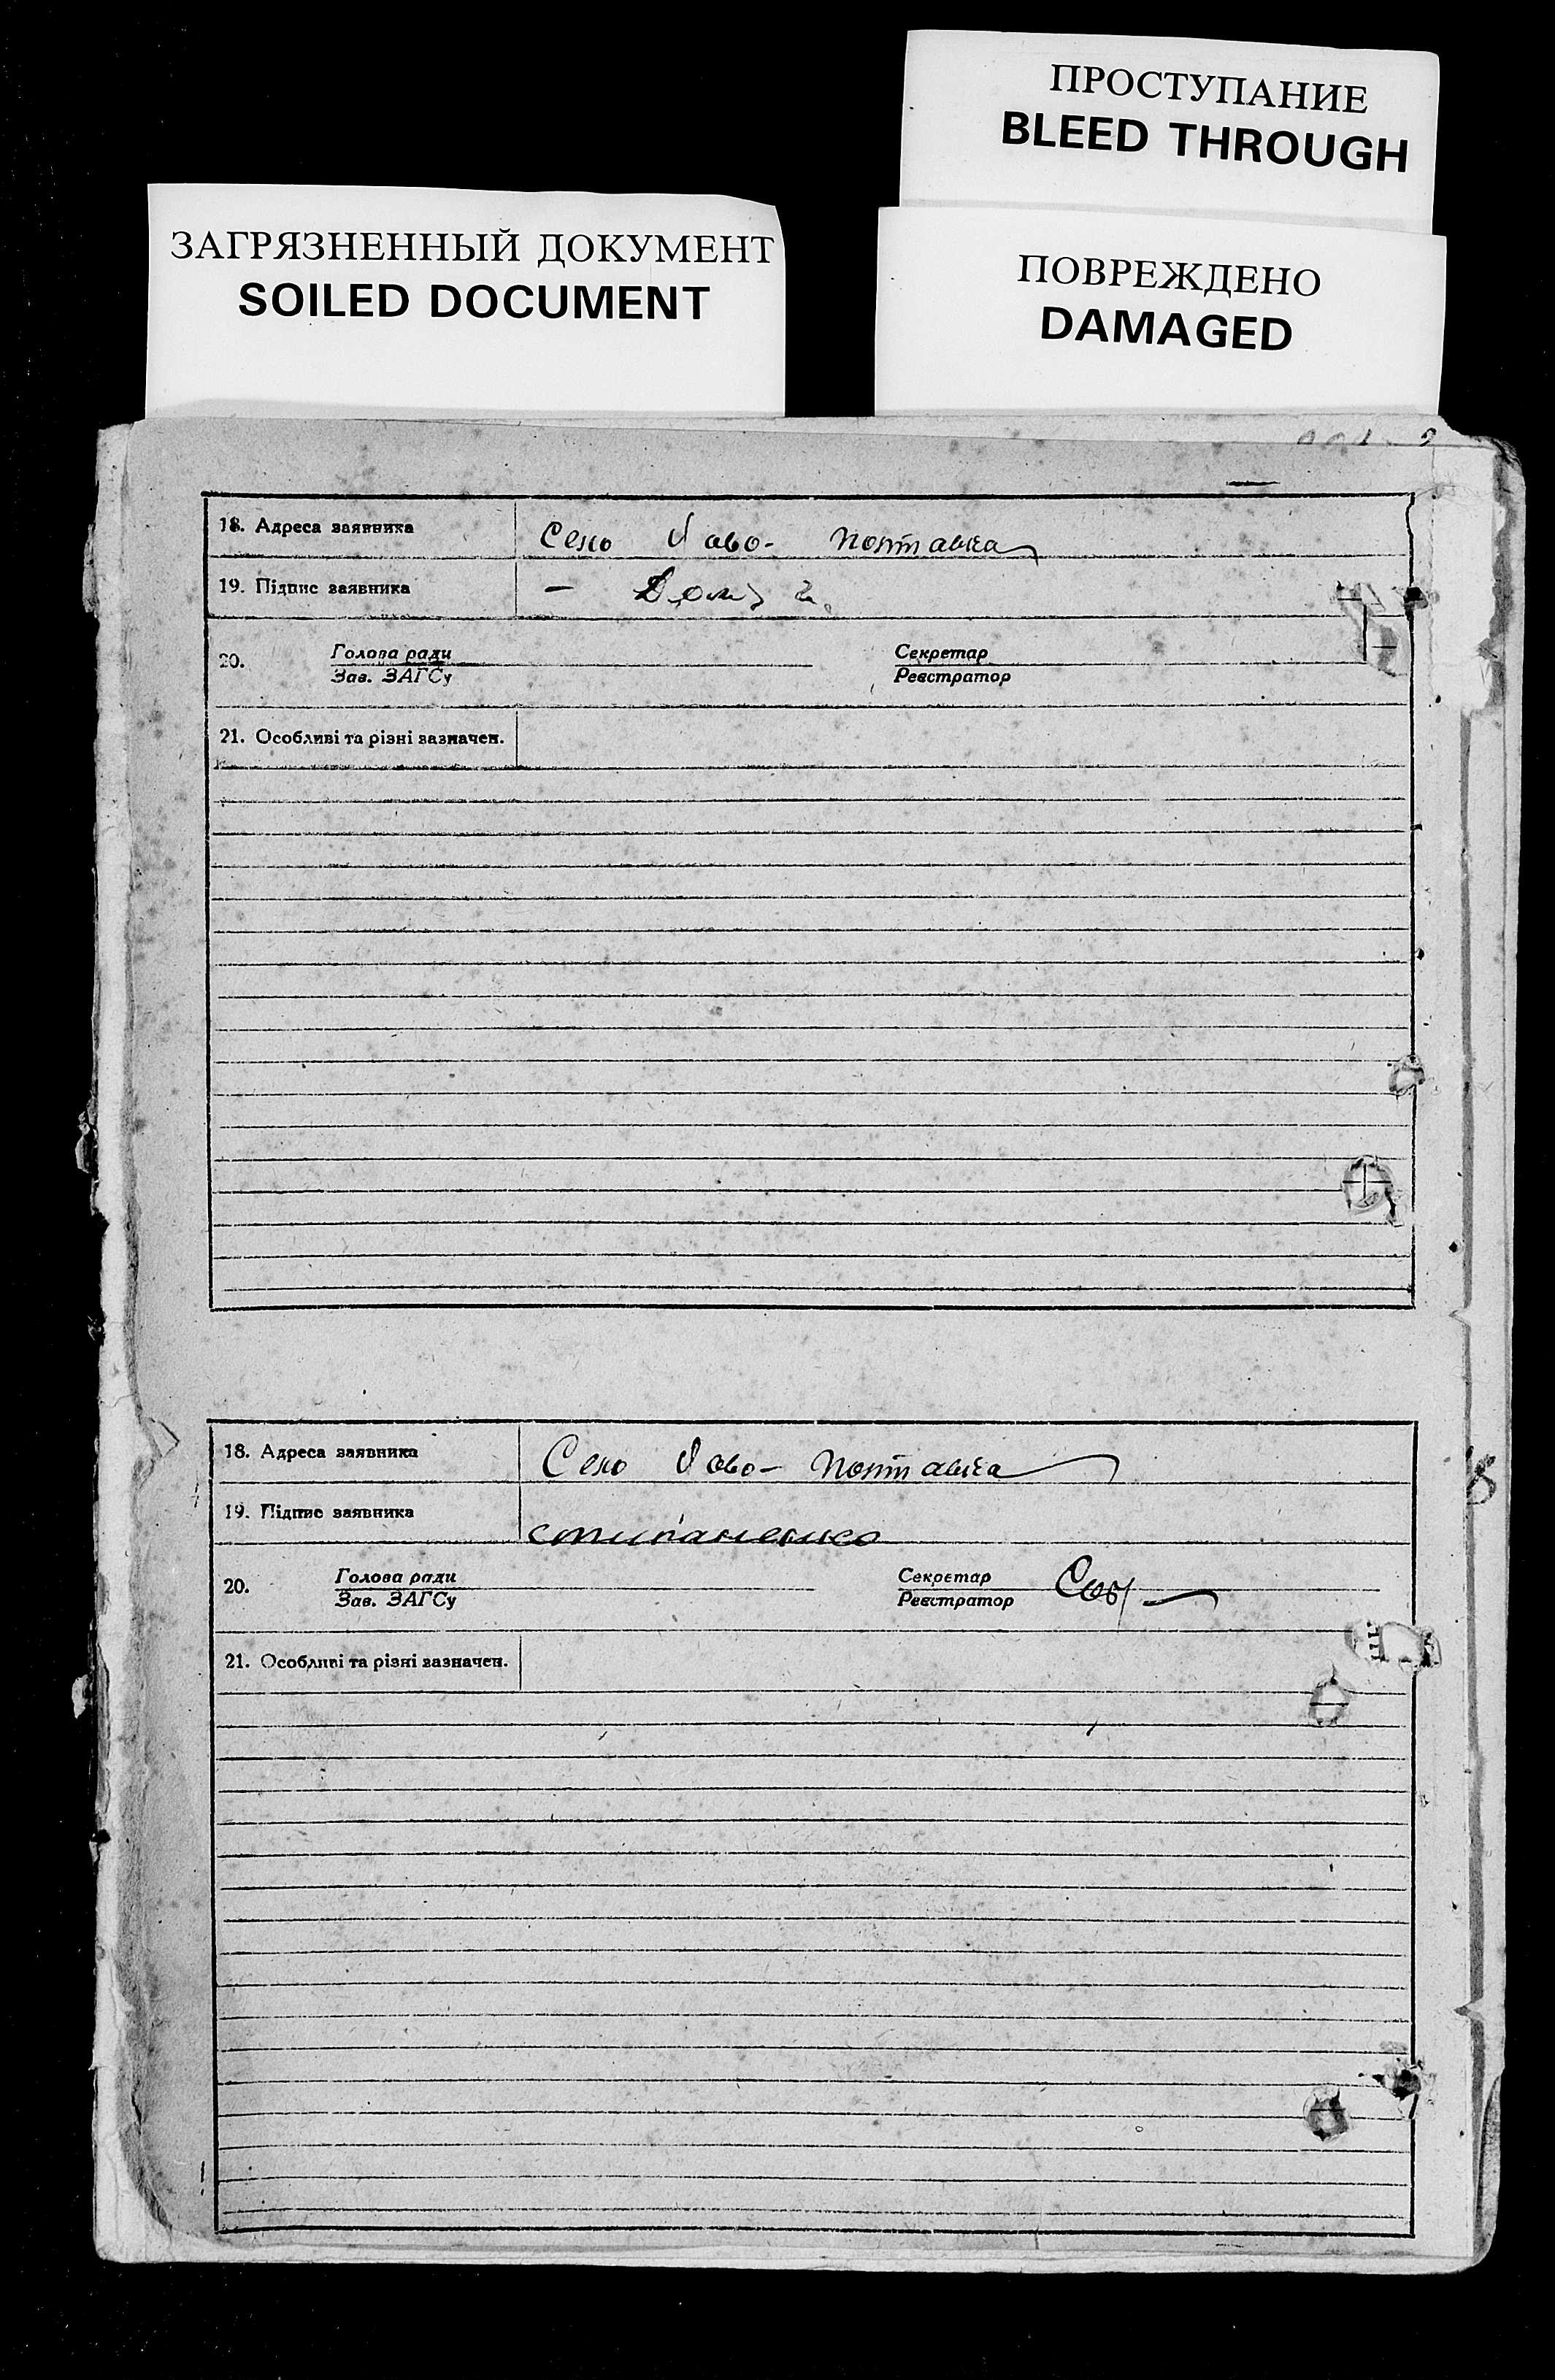 ПРОСТУПАНИЕ
BLEED THROUGH
ЗАГРЯЗНЕННЫЙ ДОКУМЕНТ
SOILED DOCUMENT
ПОВРЕЖДЕНО
DAMAGED
18. Адреса заявника Село Ново- Полтавка
19. Підпис заявника —
20. Голова ради Секретар
Зав. ЗАГСу Реєстратор
21. Особливі та різні зазначен.
18. Адреса заявника Село Ново- Полтавка
19. Підпис заявника стипаненко
20. Голова ради Секретар
Зав. ЗАГСу Реєстратор
21. Особливі та різні зазначен.